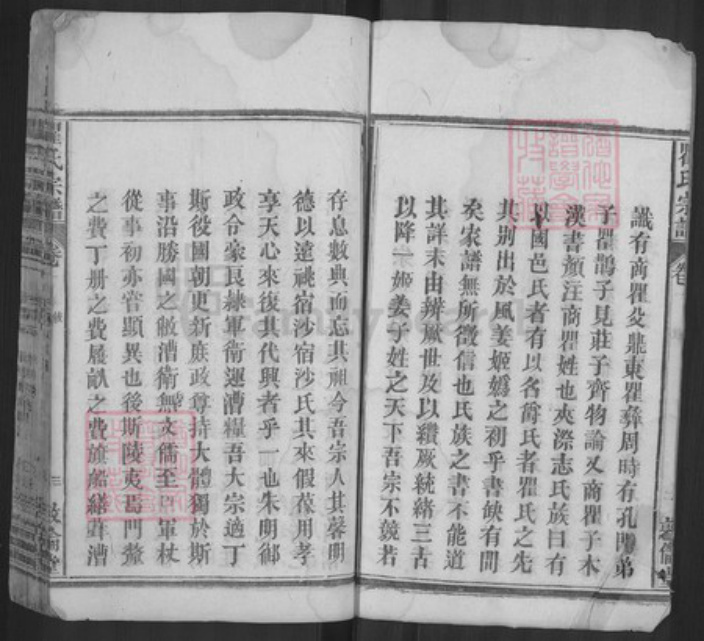 瞿氏宗譜
卷一
識有商瞿父鼎東瞿彝周時有孔門弟
子瞿鵲子見莊子齊物論又商瞿子木
漢書顏注商瞿姓也夾漈志氏族曰有
以國邑氏者有以名爵氏者瞿氏之先
其別出於風姜姬嬀之初乎書缺有間
矣家譜無所徵信也氏族之書不能道
其詳末由辨厥世及以纘厥統緒三古
以降一姬姜子姓之天下吾宗不競若
存息數典而忘其祖今吾宗人其馨明
德以遠祧宿沙宿沙氏其來假葆用孝
享天心來復其代興者乎一也朱明御
政令家艮隷軍衛運漕糧吾大宗適丁
斯役國朝更新庶政尊持大體獨於斯
事沿勝國之敝漕衛無文儒至 軍杖
從事初亦嘗顯異也後斯陵夷曷門釐
之費丁册之費屨畝之費旗船繕葺漕
氏宗譜
卷
三